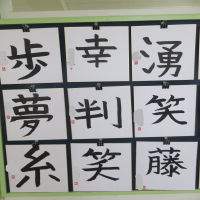 歩 幸 湧
夢 判 笑
糸 笑 藤